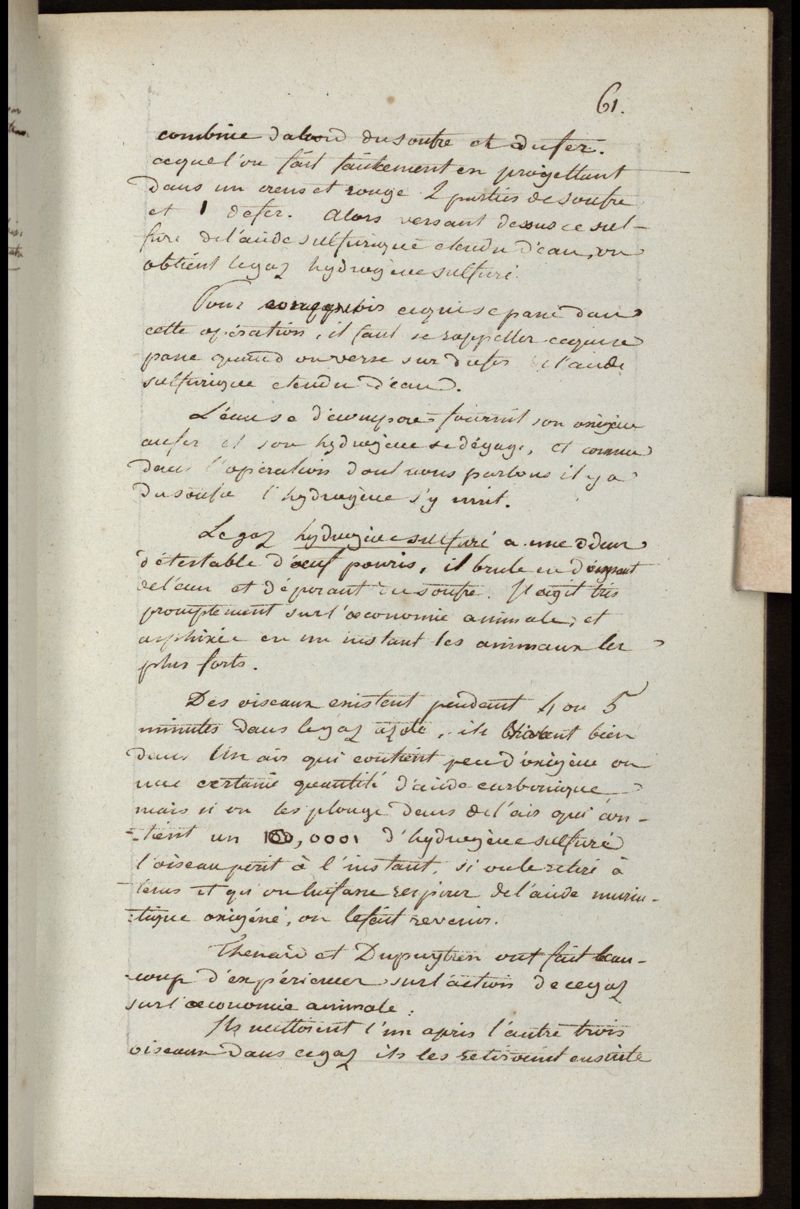 61.
combine d'abord du soufre et du fer.
ce que l'on fait facilement en projettant
dans un creuset rouge 2 parties de soufre
et 1 de fer. Alors versant dessus ce sul-
fure de l'acide sulfurique etendu d'eau, on
obtient le gaz hydrogène sulfuré.
Pour concevoir ce qui se passe dans
cette opération, il faut se rappeller ce qui se
passe quand on verse sur du fer de l'acide
sulfurique etendu d'eau.
L'eau se décompose fournit son oxigène
au fer et son hydrogène se dégage, et comme
dans l'opération dont nous parlons il y a
du soufre l'hydrogène s'y unit.
Le gaz hydrogène sulfuré a une odeur
détestable d'oeuf pourris, il brule en donnant
de l'eau et déposant du soufre. Il agit très
promptement sur l'oeconomie animale, et
asphixie en un instant les animaux les
plus forts.
Des oiseaux existent pendant 4 ou 5
minutes dans le gaz azote, ils vivent bien
dans un air qui contient peu d'oxigène ou
une certaine quantité d'acide carbonique
mais si on les plonge dans de l'air qui con-
-tient un 100,0001 d'hydrogène sulfuré
l'oiseau périt à l'instant, si on le retire à
tems et qu'on lui fasse respirer de l'acide muria-
-tique oxigéné, on le fait revenir.
Thenard et Dupuytren ont fait beau-
-coup d'expériences sur l'action de ce gaz
sur l'oeconomie animale.
Ils mettoient l'un après l'autre trois
oiseaux dans ce gaz ils les retiroient ensuite